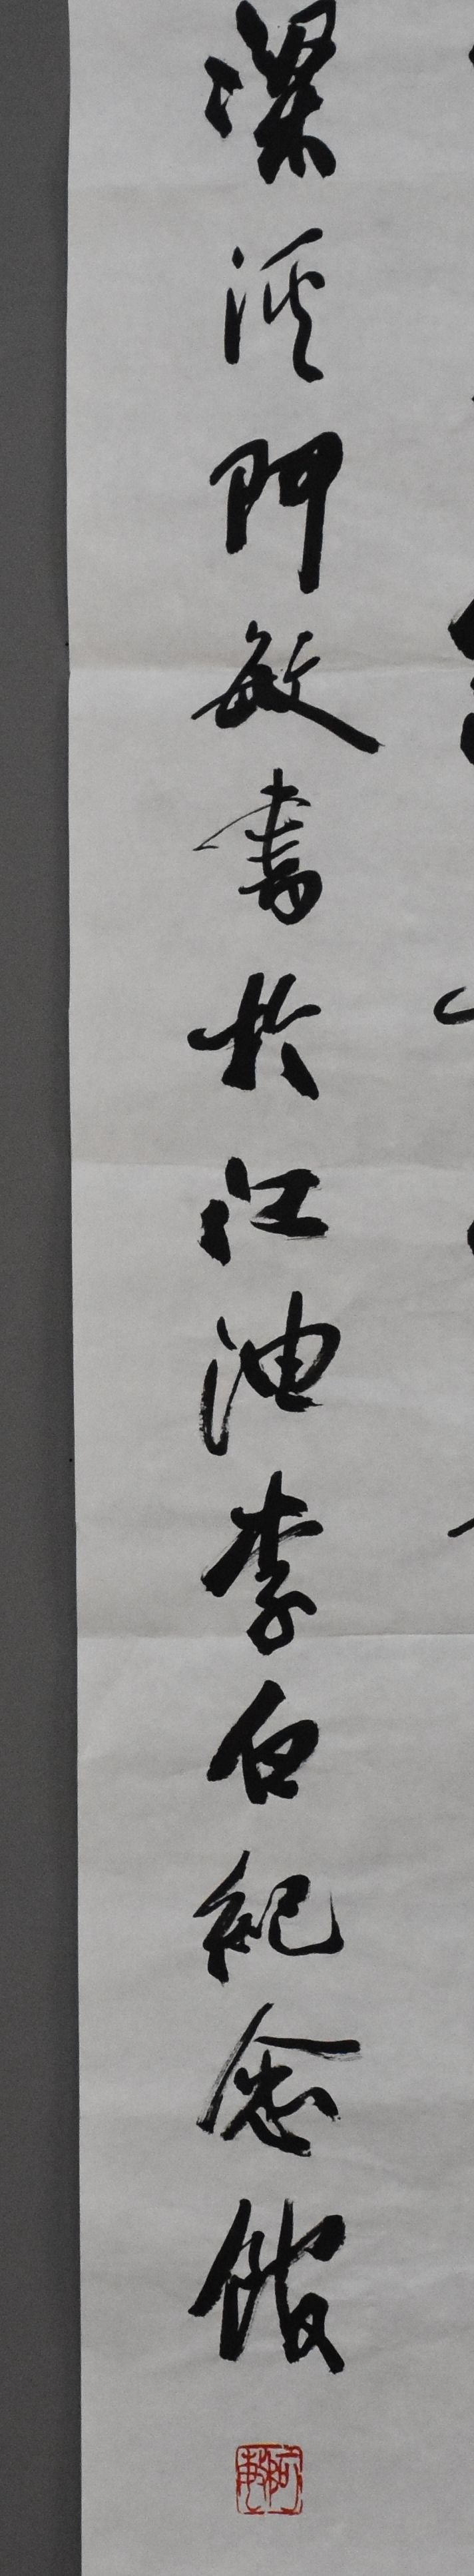 溪阿敏書於江油李白紀念館
阿敏